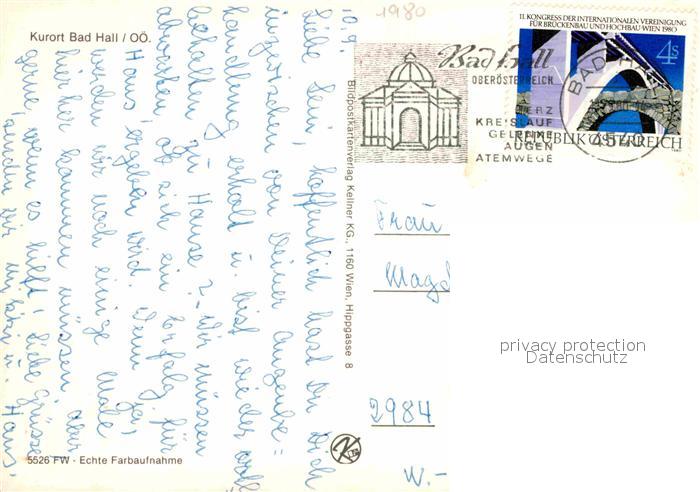 1980
Kurort Bad Hall / OÖ.
10.9.
Liebe Leni, hoffentlich hast Du Dich
inzwischen von Deiner Augenbe=
handlung erholt u. bist wieder
zu Hause? Wir müssen
abwarten ob sich ein Erfolg für
Hans ergeben wird. Denn ja,
werden wir noch einige Male
hier her kommen müssen, aber
gerne, wenn es hilft! Liebe Grüsse
senden Dir u. Hans.
5526 FW - Echte Farbaufnahme
Bildpostkartenverlag Kellner KG., 1160 Wien, Hippgasse 8
Bad Hall
OBERÖSTERREICH
HERZ
KREISLAUF
GELENKE
AUGEN
ATEMWEGE
BAD HALL
4540
II. KONGRESS DER INTERNATIONALEN VEREINIGUNG
FÜR BRÜCKENBAU UND HOCHBAU · WIEN 1980
4s
REPUBLIK ÖSTERREICH
Frau
Magd
2984
W.-
privacy protection
Datenschutz